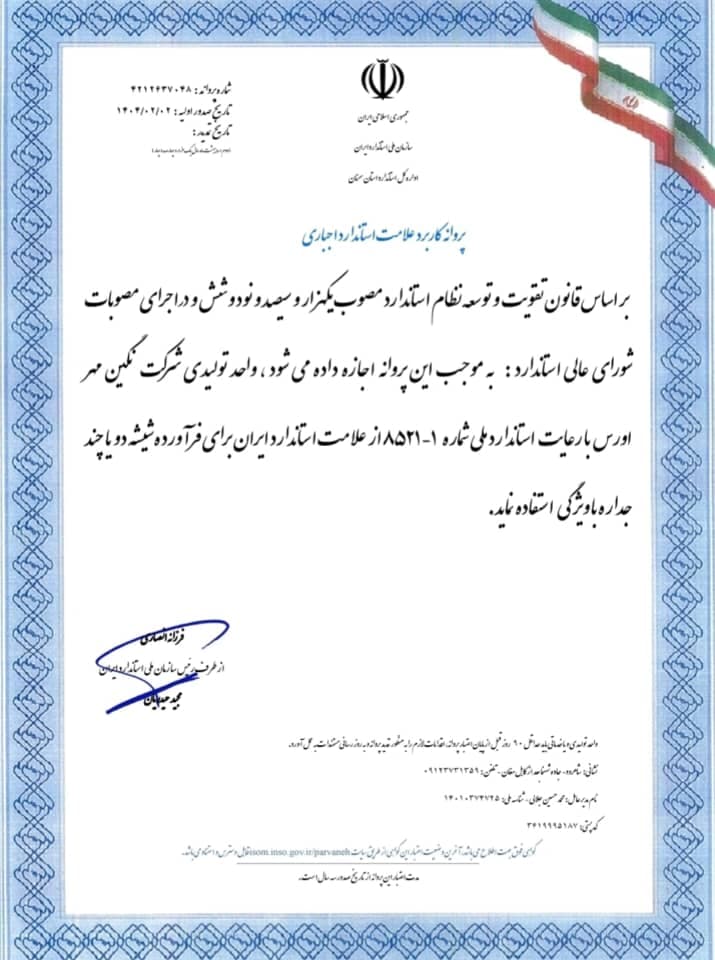 جمهوری اسلامی ایران
سازمان ملی استاندارد ایران
اداره کل استاندارد استان سمنان
شماره پروانه: ۴۲۱۲۶۳۷۰۴۸
تاریخ صدور اولیه: ۱۴۰۴/۰۲/۰۲
تاریخ تمدید:
پروانه کاربرد علامت استاندارد اجباری
بر اساس قانون تقویت و توسعه نظام استاندارد مصوب یکهزار و سیصد و نود و شش و در اجرای مصوبات
شورای عالی استاندارد: به موجب این پروانه اجازه داده می شود، واحد تولیدی شرکت نگین مهر
اورس با رعایت استاندارد ملی شماره ۱-۸۵۲۱ از علامت استاندارد ایران برای فرآورده شیشه دو یا چند
جداره با ویژگی استفاده نماید.
فرزانه انصاری
از طرف رئیس سازمان ملی استاندارد ایران
واحد تولیدی و یا خدماتی باید حداقل ۹۰ روز قبل از پایان اعتبار پروانه، اقدامات لازم را به منظور تمدید پروانه و به روز رسانی مستندات به عمل آورد.
نشانی: شاهرود - جاده - تلفن: ۰۹۱۲۳۷۳۱۳۵۹
نام مدیر عامل: محمد حسین جلالی - شناسه ملی: ۱۴۰۱۰۳۷۴۷۲۵
کد پستی: ۳۶۱۹۹۹۵۱۸۷
گواهی فوق جهت اطلاع می باشد. آخرین وضعیت اعتبار این گواهی از طریق سایت isom.inso.gov.ir/parvaneh قابل دسترس و استناد می باشد.
مدت اعتبار این پروانه از تاریخ صدور سه سال است.